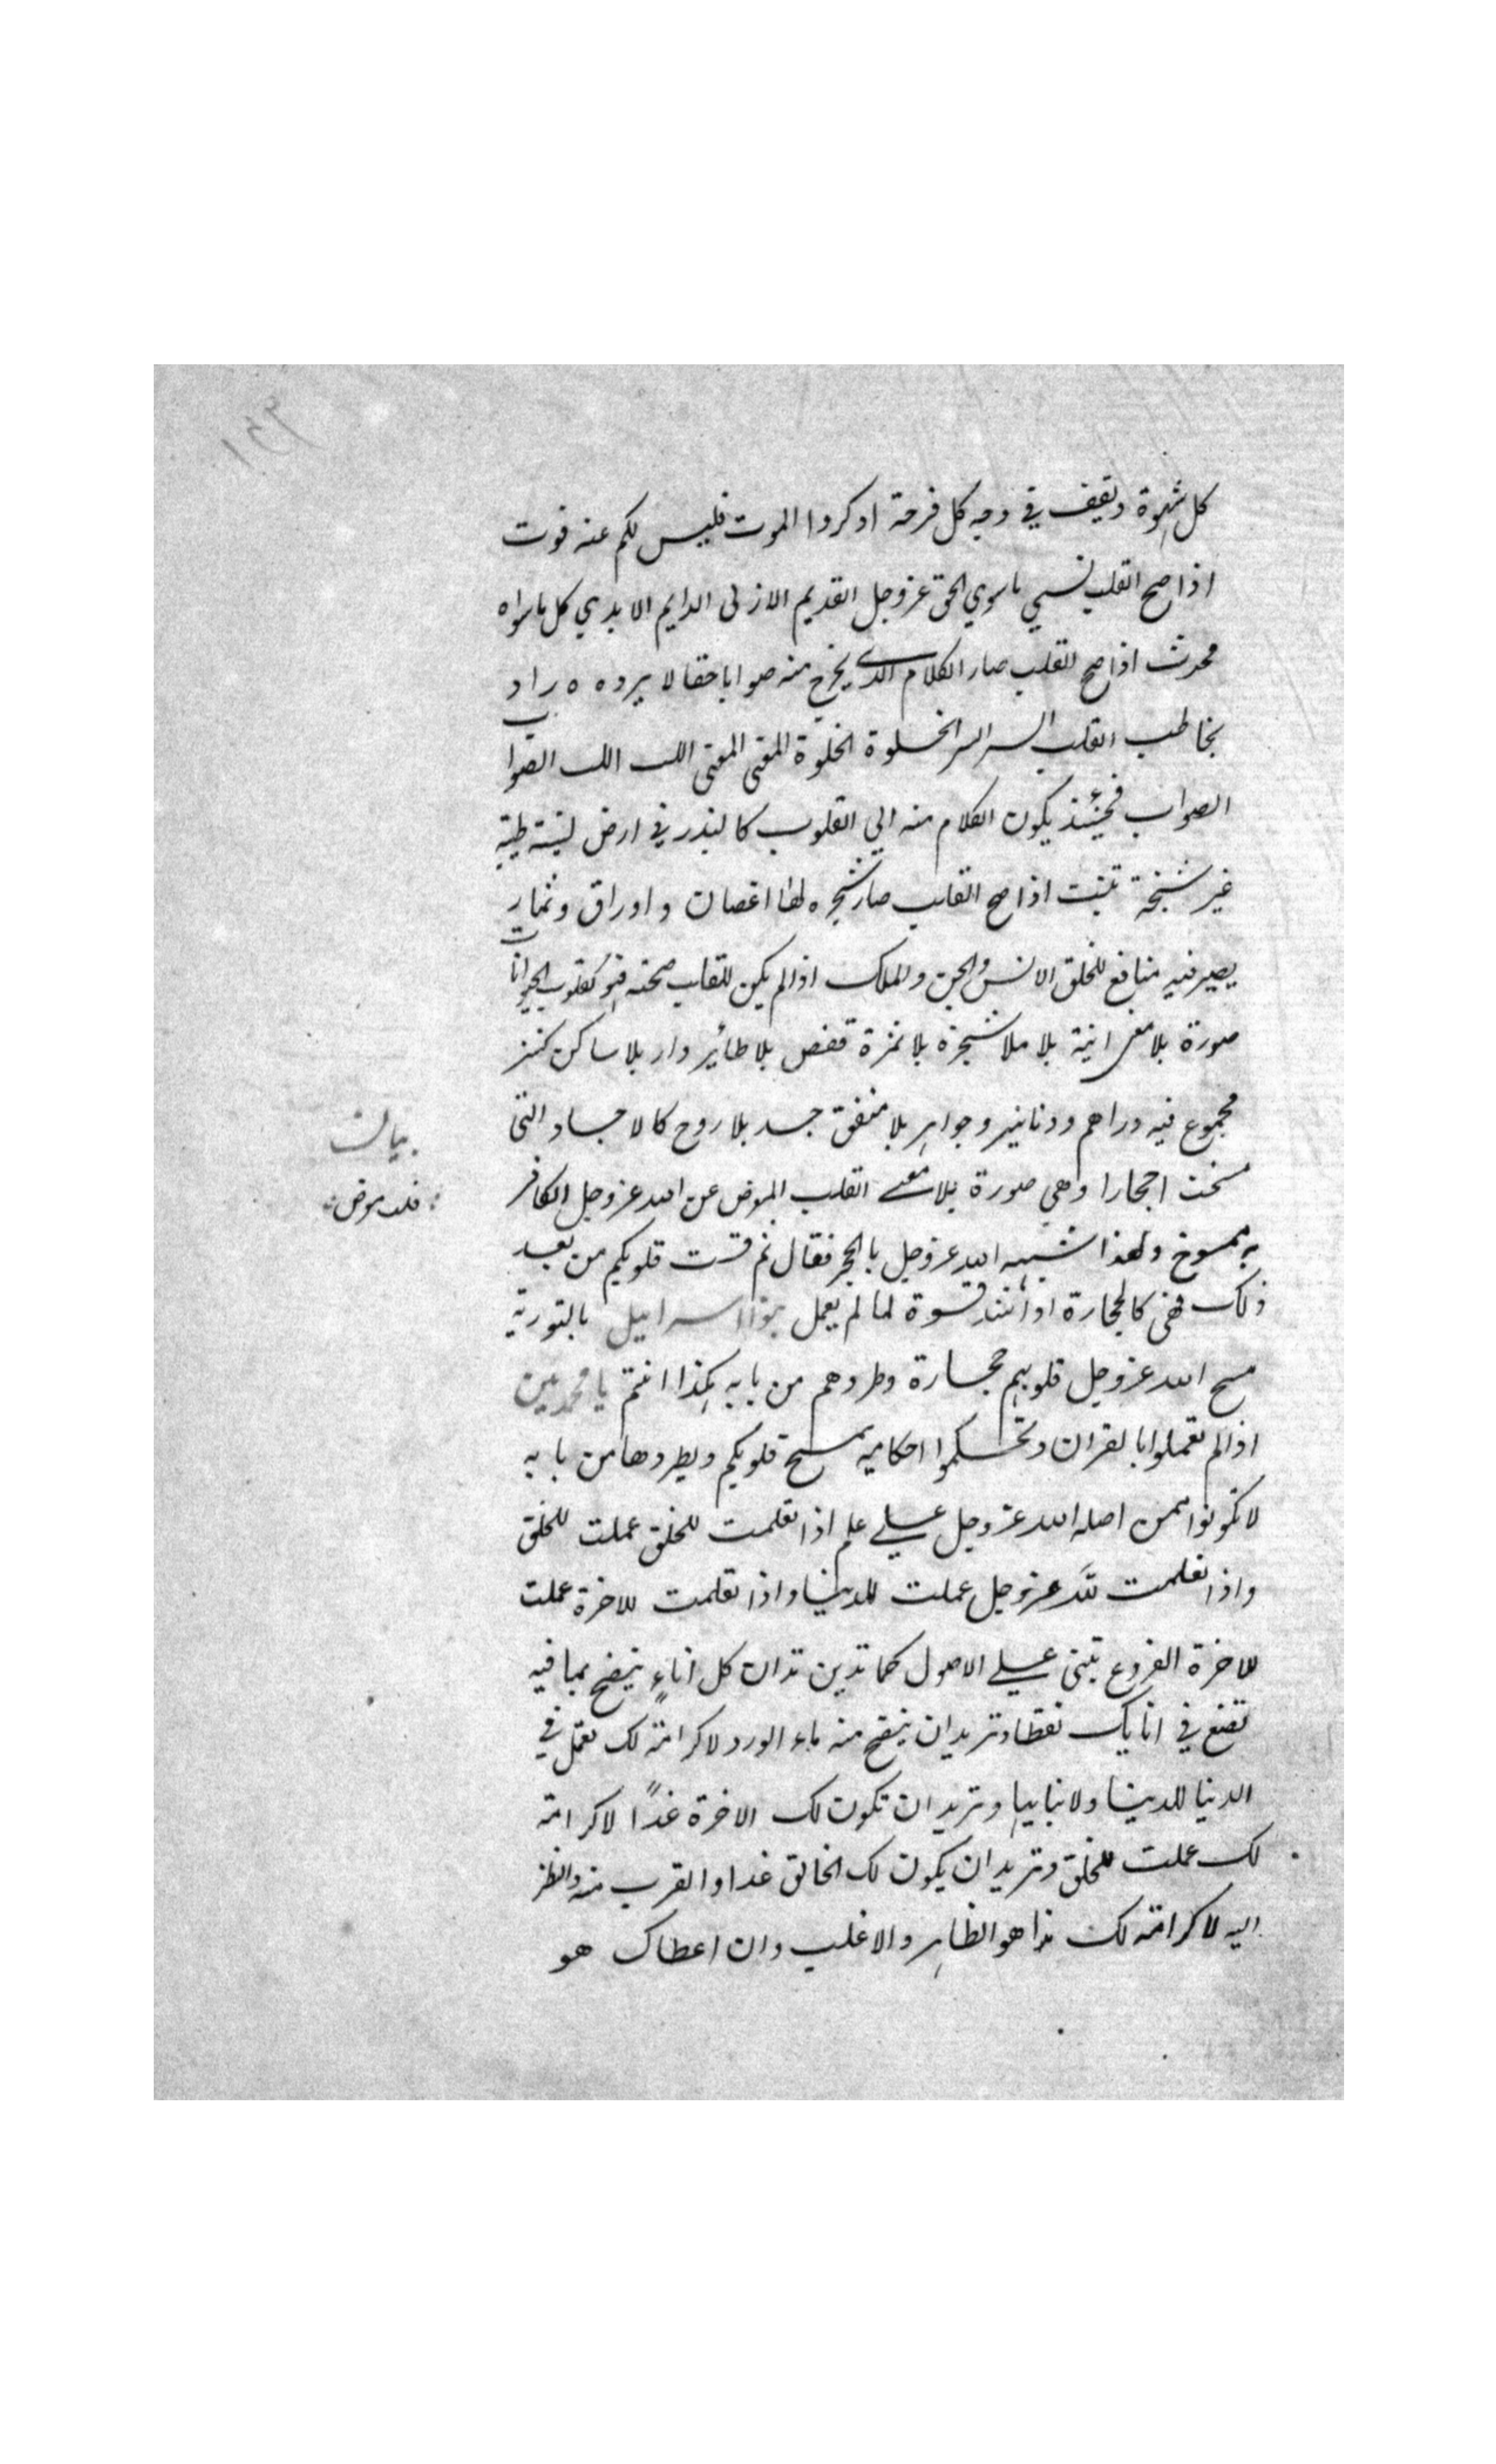 كل شهوة ويقف في وجه كل فرحة اذكروا الموت فليس لكم عنه فوت
اذا صح القلب نسي ماسوي الحق عزوجل القديم الازلى الدايم الابدي كل ماسواه
محدث اذا صح القلب صار الكلام الذي يخرج منه صوابا حقا لا يرده راد
يخاطب القلب السر السر الخلوة الخلوة المعنى المعنى اللب اللب الصواب
الصواب فحينئذ يكون الكلام منه الي القلوب كالبذر في ارض لينة طيبة
غير سبخة تنبت اذا صح القلب صار شجره لها اغصان و اوراق وثمار
يصير فيه منافع للخلق الانس والجن والملك اذا لم يكن للقلب صحته فهو كقلوب الحيوانات
صورة بلا معنى انية بلا ملا شجرة بلا ثمرة قفص بلا طائر دار بلا ساكن كنز
مجموع فيه دراهم ودنانير وجواهر بلا منفق جسد بلا روح كالاجساد التى
مسخت احجارا وهي صورة بلا معنے القلب المعرض عن الله عزوجل الكافر
به ممسوخ ولهذا شبهه الله عزوجل بالحجر فقال ثم قست قلوبكم من بعد
ذلك فهى كالحجارة او اشد قسوة لما لم يعمل بنوا اسراييل بالتورية
مسح الله عزوجل قلوبهم حجارة وطردهم من بابه هكذا انتم يا محمديين
اذا لم تعملوا بالقران وتحكموا احكامه يمسح قلوبكم ويطردها من بابه
لا تكونوا ممن اضله الله عزوجل علے علم اذا تعلمت للخلق عملت للخلق
واذا تعلمت لله عزوجل عملت للدينا واذا تعلمت للاخرة عملت
للاخرة الفروع تبنى علے الاصول كما تدين تدان كل اناءٍ ينضح بما فيه
تضع في انايك نفطا وتريد ان ينضح منه ماء الورد لا كرامة لك تعمل في
الدنيا للدينا ولابنايها وتريد ان تكون لك الاخرة غدًا لا كرامة
لك عملت للخلق وتريد ان يكون لك الخالق غدا والقرب منه والنظر
اليه لا كرامة لك هذا هو الظاهر والاغلب وان اعطاك هو
بيان
قلب معرض